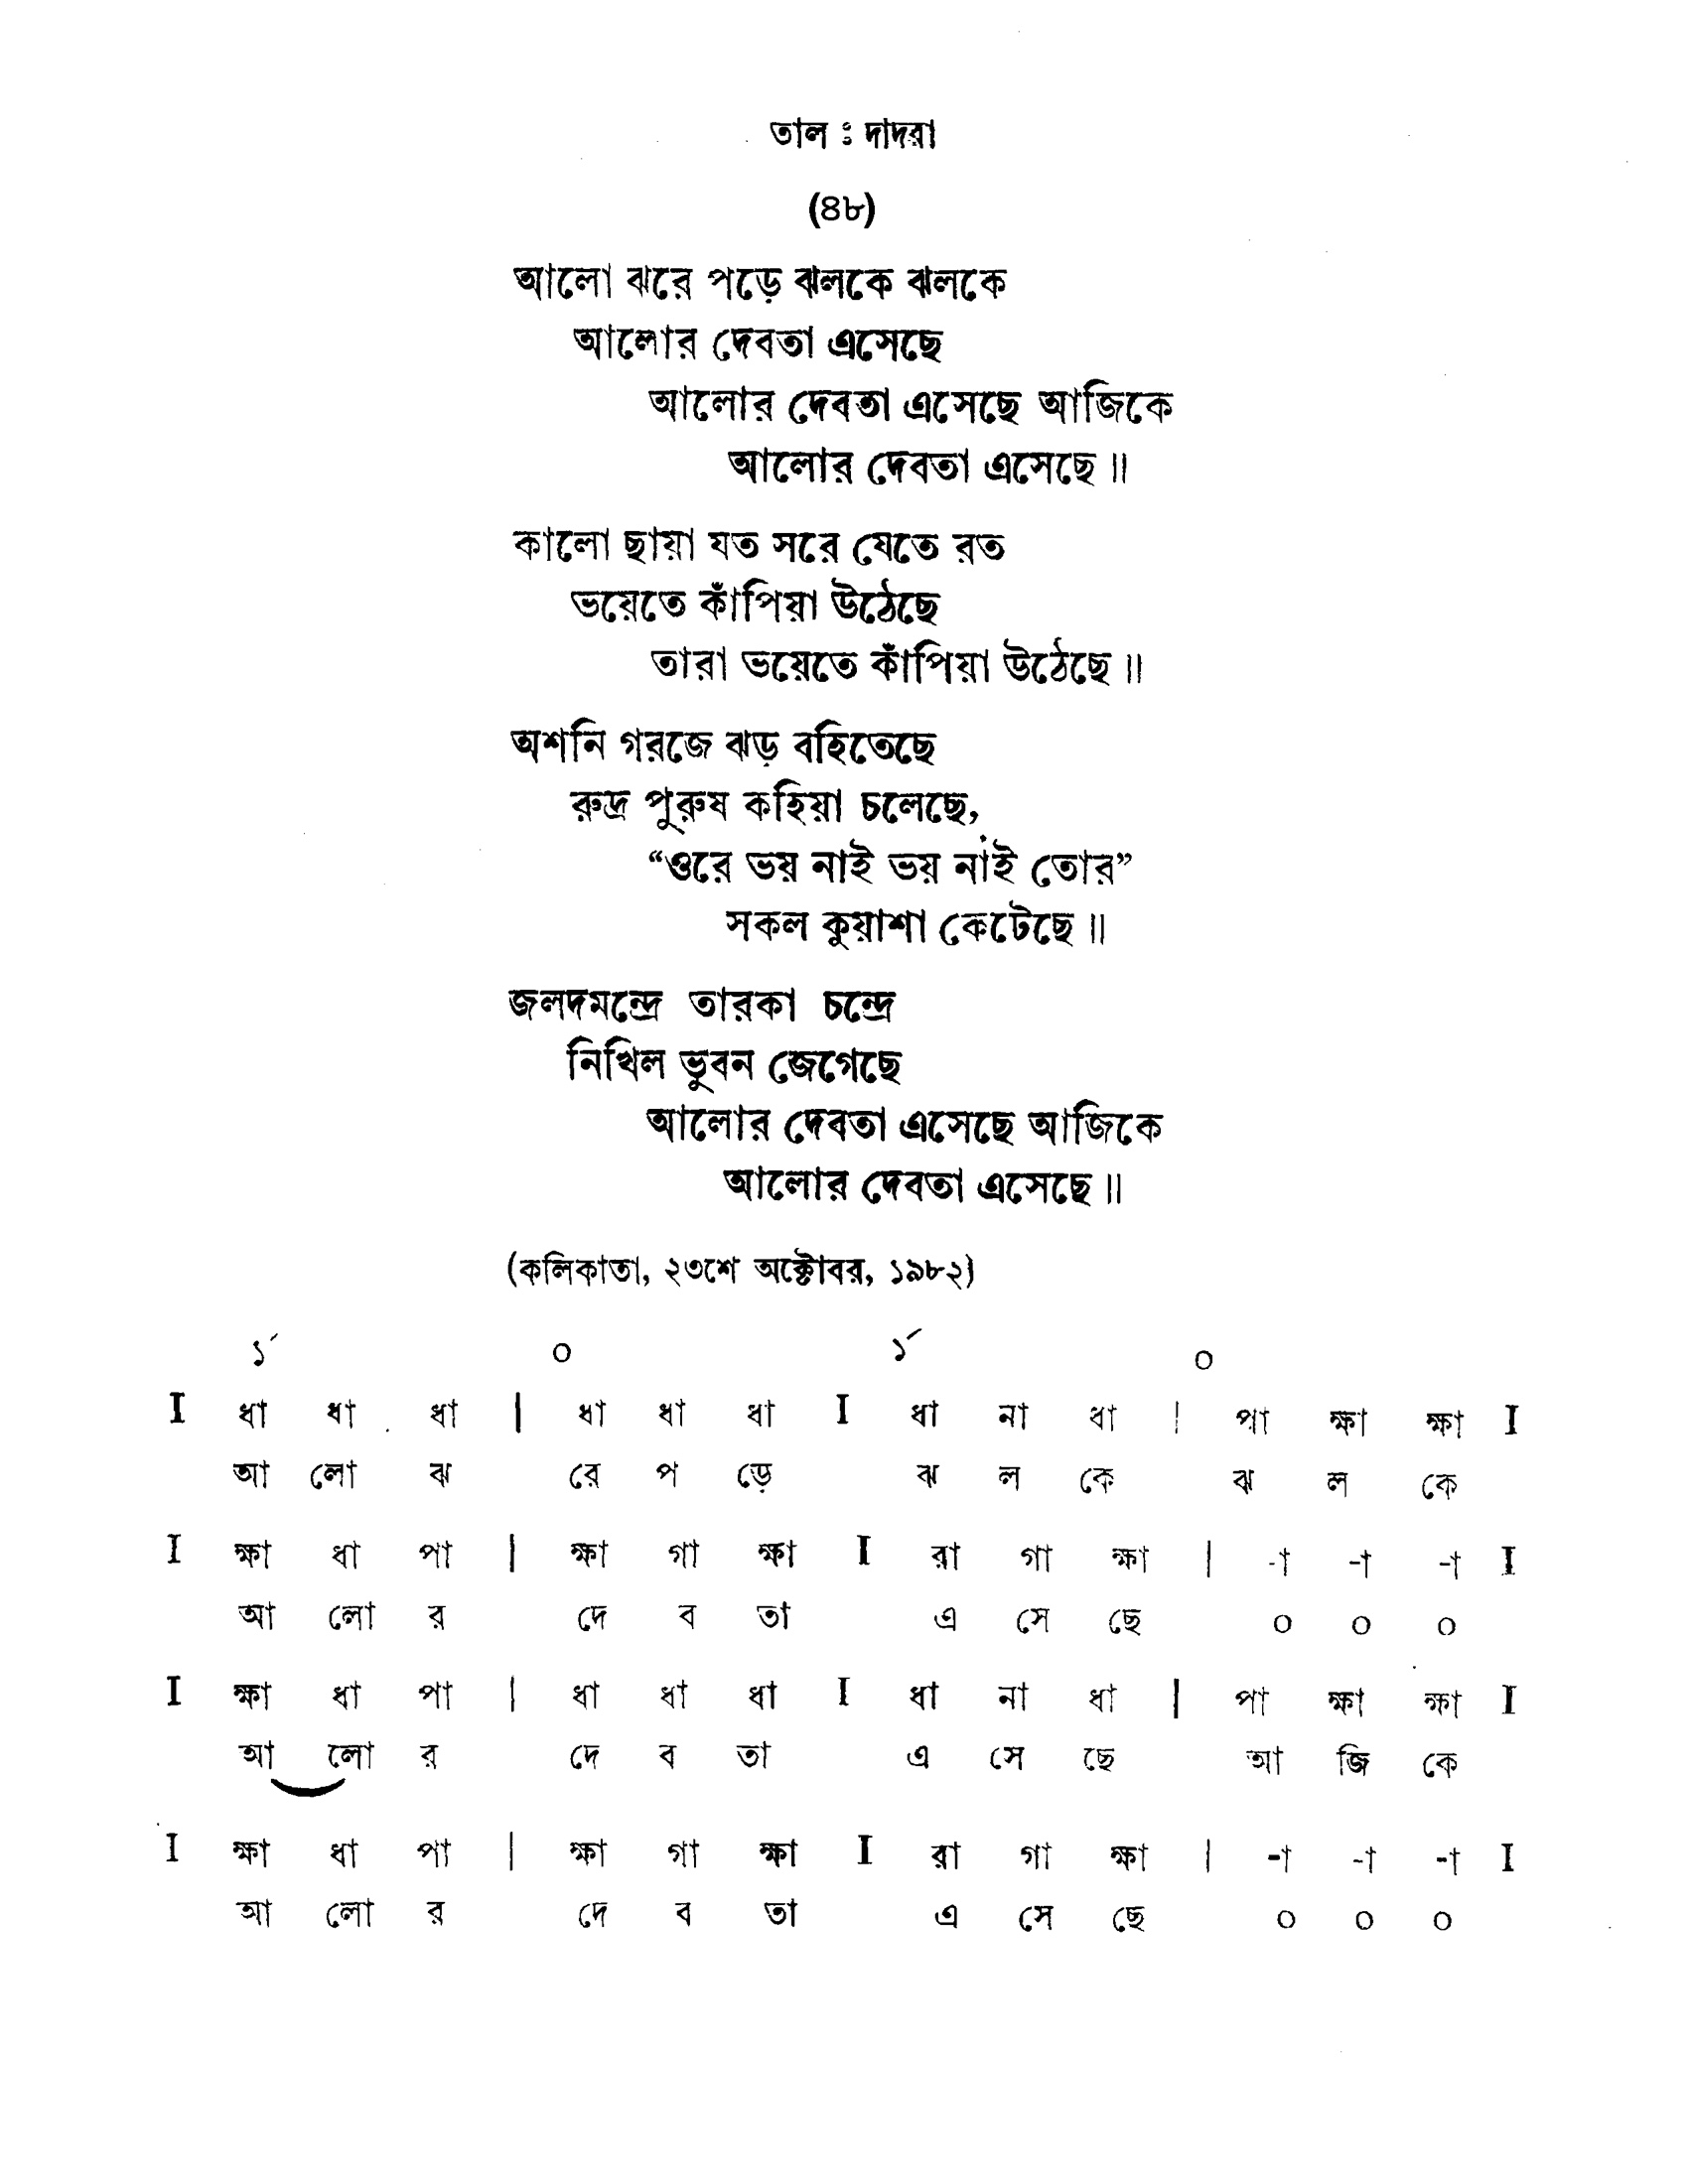 তাল ঃ দাদরা
(৪৮)
আলো ঝরে পড়ে ঝলকে ঝলকে
আলোর দেবতা এসেছে
আলোর দেবতা এসেছে আজিকে
আলোর দেবতা এসেছে॥
কালো ছায়া যত সরে যেতে রত
ভয়েতে কাঁপিয়া উঠেছে
তারা ভয়েতে কাঁপিয়া উঠেছে॥
অশনি গরজে ঝড় বহিতেছে
রুদ্র পুরুষ কহিয়া চলেছে,
“ওরে ভয় নাই ভয় নাই তোর”
সকল কুয়াশা কেটেছে॥
জলদমন্দ্রে তারকা চন্দ্রে
নিখিল ভুবন জেগেছে
আলোর দেবতা এসেছে আজিকে
আলোর দেবতা এসেছে॥
(কলিকাতা, ২৩শে অক্টোবর, ১৯৮২)
১´ ০ ১´ ০
I ধা ধা ধা | ধা ধা ধা I ধা না ধা | পা ক্ষা ক্ষা I
আ লো ঝ রে প ড়ে ঝ ল কে ঝ ল কে
I ক্ষা ধা পা | ক্ষা গা ক্ষা I রা গা ক্ষা | -া -া -া I
আ লো র দে ব তা এ সে ছে ০ ০ ০
I ক্ষা ধা পা | ধা ধা ধা I ধা না ধা | পা ক্ষা ক্ষা I
আ লো র দে ব তা এ সে ছে আ জি কে
I ক্ষা ধা পা | ক্ষা গা ক্ষা I রা গা ক্ষা | -া -া -া I
আ লো র দে ব তা এ সে ছে ০ ০ ০